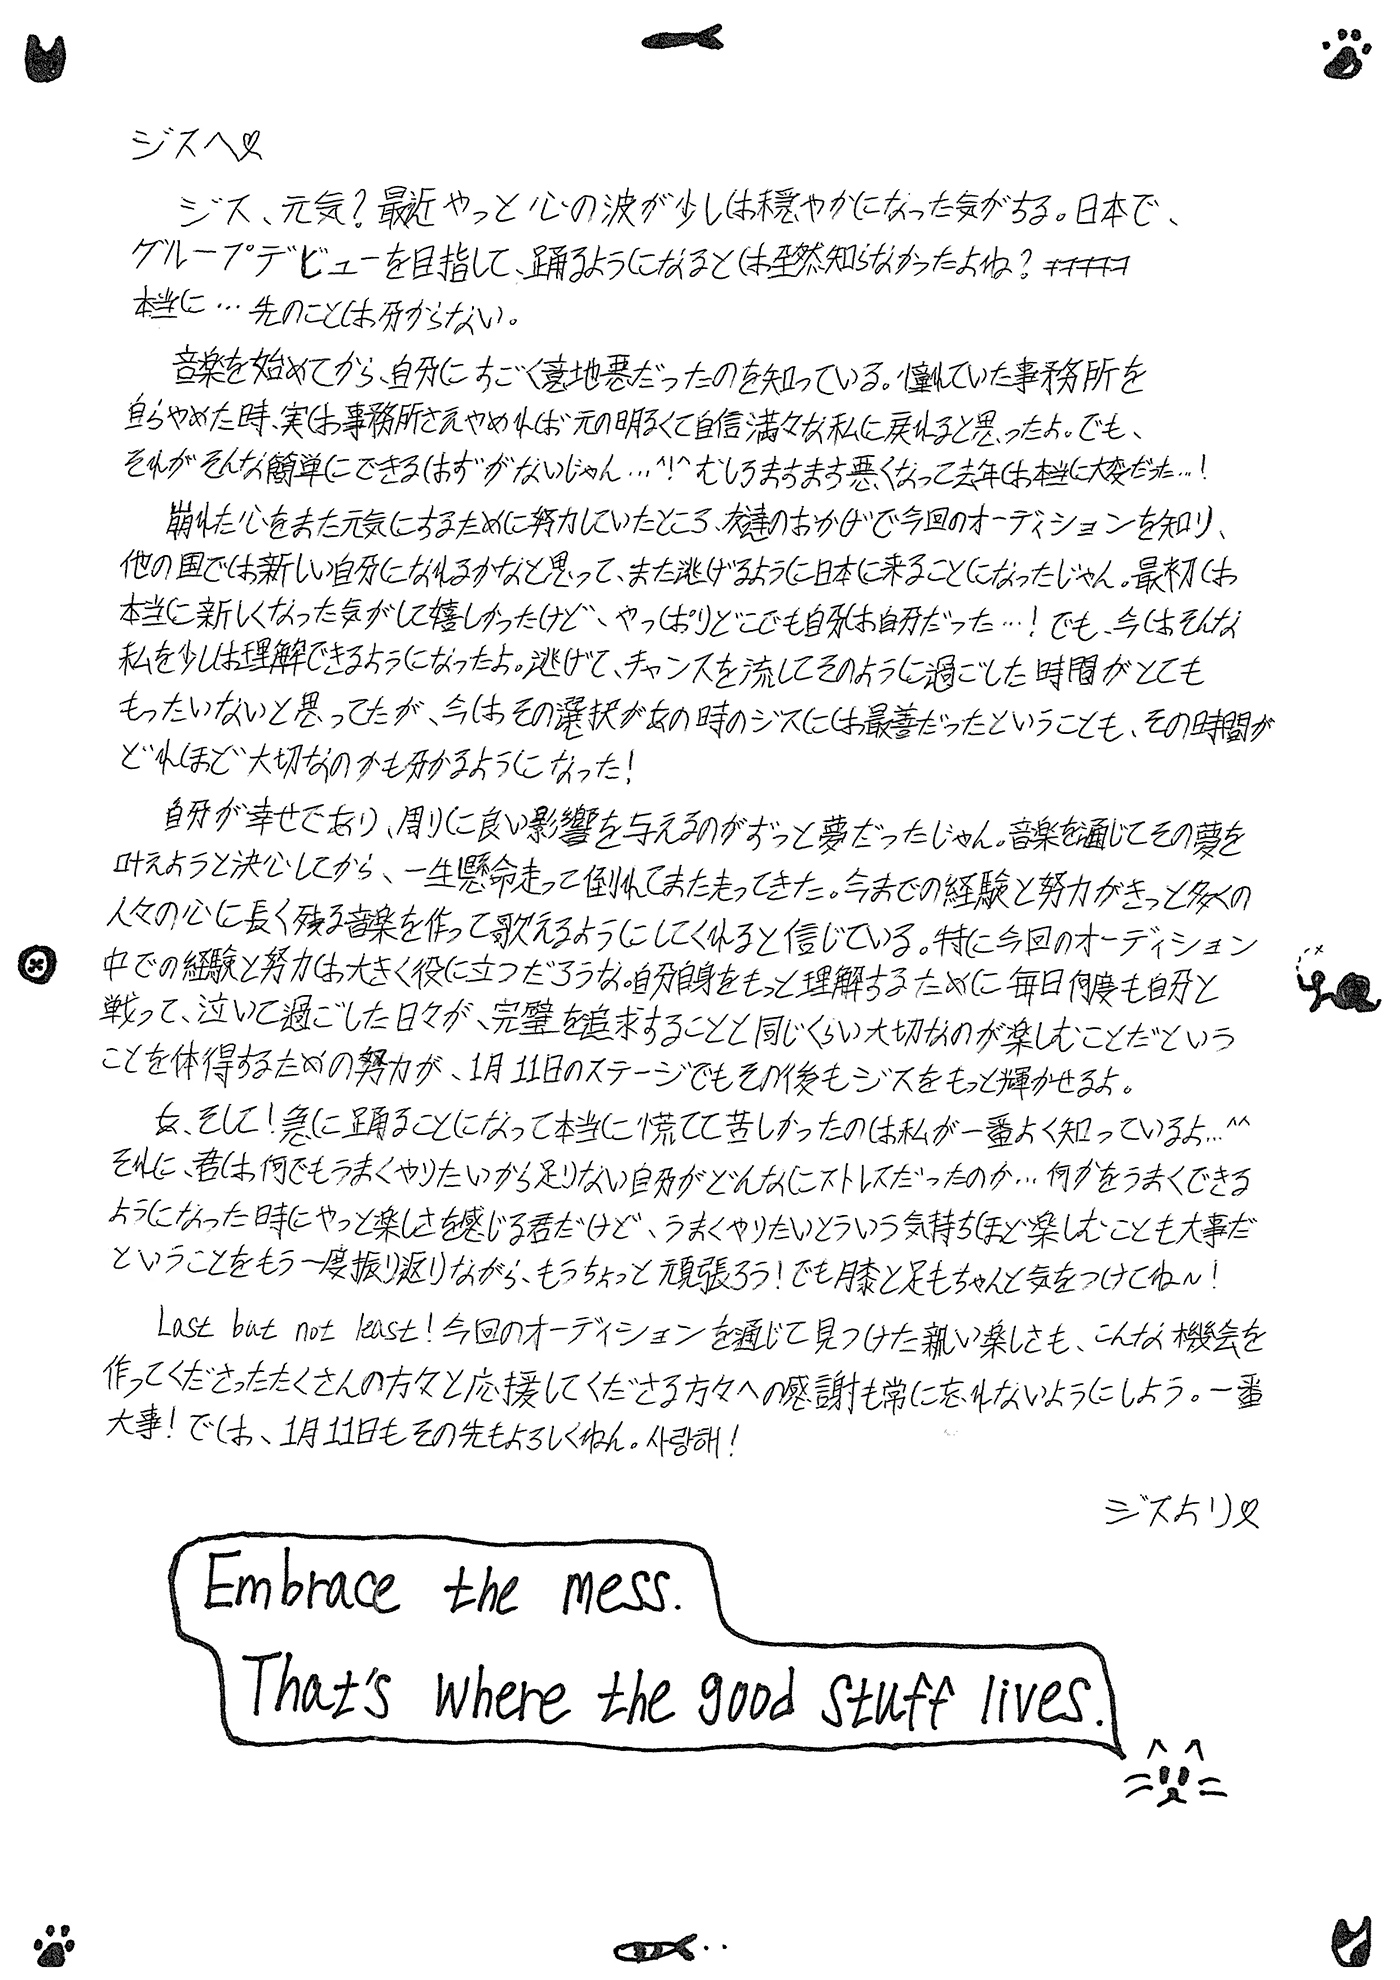 ジスへ♡
ジス、元気？最近やっと心の波が少しは穏やかになった気がする。日本で、
グループデビューを目指して、踊るようになるとは全然知らなかったよね？ㅋㅋㅋㅋㅋ
本当に…先のことは分からない。
音楽を始めてから、自分にすごく意地悪だったのを知っている。憧れていた事務所を
自らやめた時、実は事務所さえやめれば元の明るくて自信満々な私に戻れると思ったよ。でも、
それがそんな簡単にできるはずがないじゃん…^!^むしろますます悪くなって去年は本当に大変だった…!
崩れた心をまた元気にするために努力していたところ、友達のおかげで今回のオーディションを知り、
他の国では新しい自分になれるかなと思って、また逃げるように日本に来ることになったじゃん。最初は
本当に新しくなった気がして嬉しかったけど、やっぱりどこでも自分は自分だった…!でも、今はそんな
私を少しは理解できるようになったよ。逃げて、チャンスを流してそのように過ごした時間がとても
もったいないと思ってたが、今はその選択があの時のジスには最善だったということも、その時間が
どれほど大切なのかも分かるようになった!
自分が幸せであり、周りに良い影響を与えるのがずっと夢だったじゃん。音楽を通じてその夢を
叶えようと決心してから、一生懸命走って倒れてまた走ってきた。今までの経験と努力がきっと多くの
人々の心に長く残る音楽を作って歌えるようにしてくれると信じている。特に今回のオーディション
中での経験と努力は大きく役に立つだろうな。自分自身をもっと理解するために毎日何度も自分と
戦って、泣いて過ごした日々が、完璧を追求することと同じくらい大切なのが楽しむことだという
ことを体得するための努力が、1月11日のステージでもその後もジスをもっと輝かせるよ。
あ、そして!急に踊ることになって本当に慌てて苦しかったのは私が一番よく知っているよ…^^
それに、君は何でもうまくやりたいから足りない自分がどんなにストレスだったのか…何かをうまくできる
ようになった時にやっと楽しさを感じる君だけど、うまくやりたいとういう気持ちほど楽しむことも大事だ
ということをもう一度振り返りながら、もうちょっと頑張ろう!でも膝と足もちゃんと気をつけてね〜!
Last but not least!今回のオーディションを通じて見つけた新しい楽しさも、こんな機会を
作ってくださったたくさんの方々と応援してくださる方々への感謝も常に忘れないようにしよう。一番
大事!では、1月11日もその先もよろしくねん。사랑해!
ジスより♡
Embrace the mess.
That's where the good stuff lives.